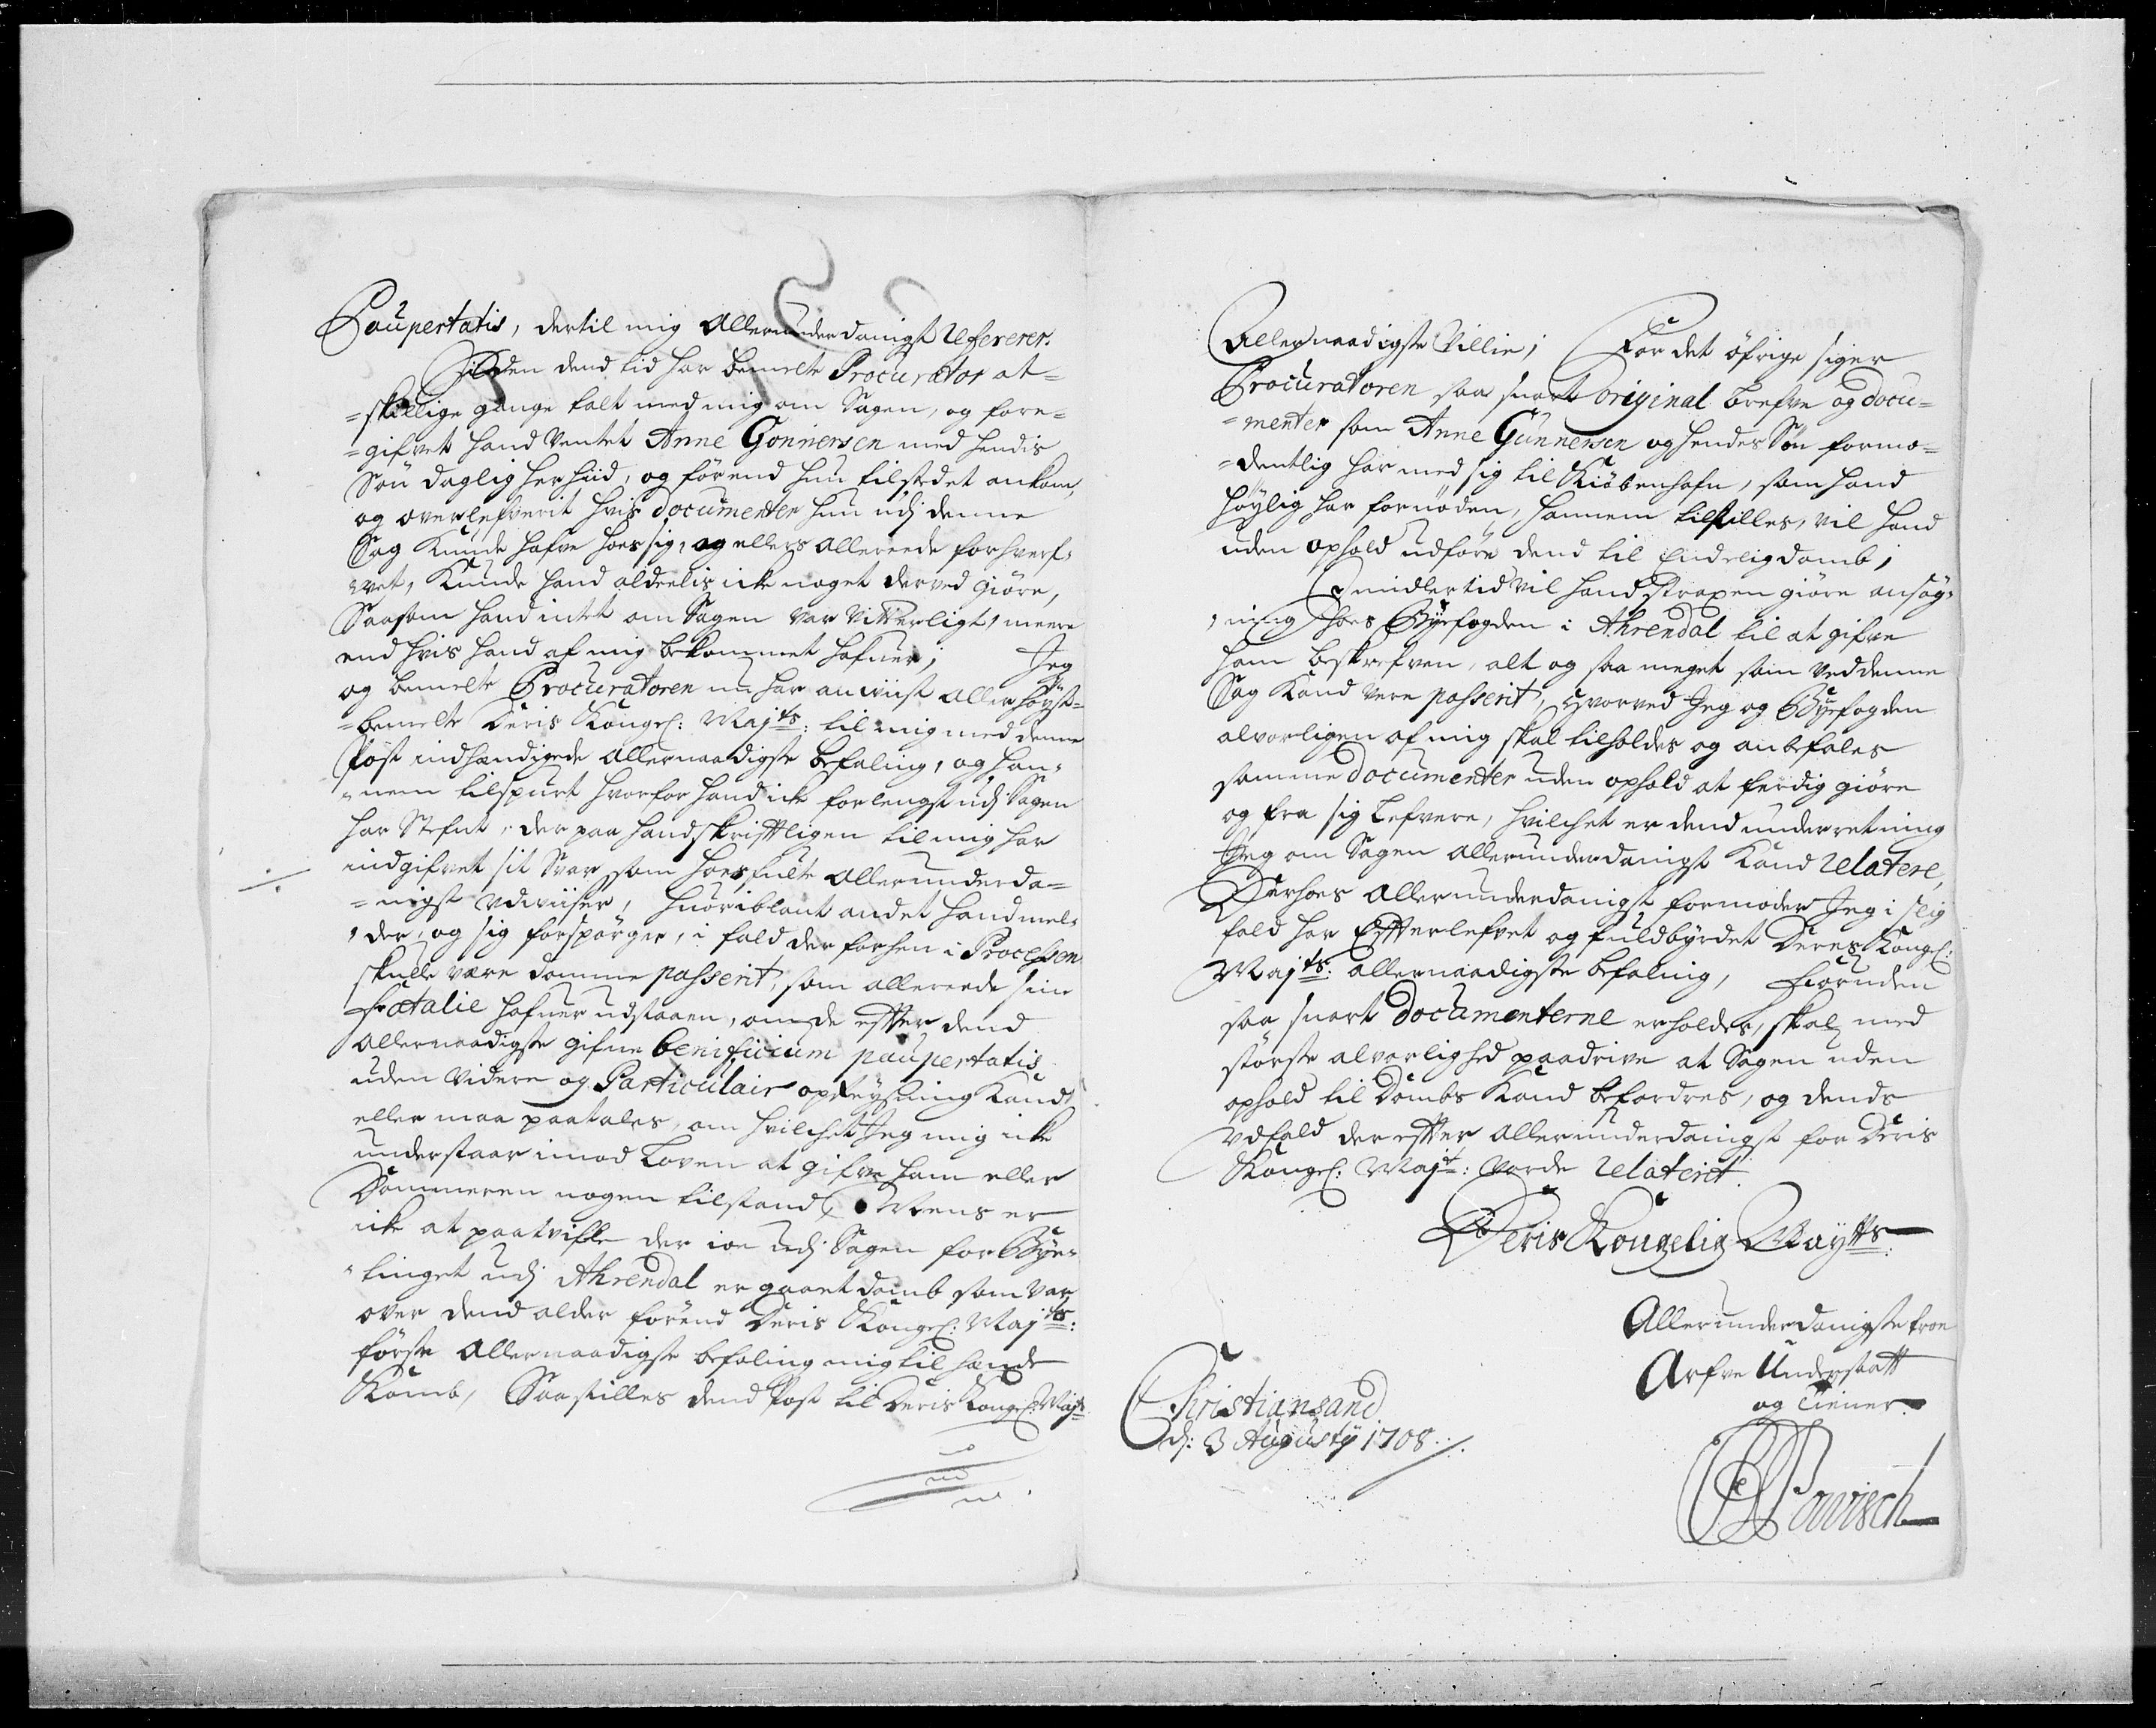 Paupertatis, dertil mig Allerunderdanigst Refererer.
Siden dend tid har bemelte Procurator at=
=skillige gange talt med mig om Sagen, og fore=
=gifvet hand ventet Anne Gonnersen med hendis
Søn daglig herhiid, og førend hun tilstedet ankom,
og overlefverit hvis documenter hun udj denne
Sag Kunde hafve hoes sig, og ellers allereede forhverf=
vet, Kunde hand aldeelis icke noget derved giøre,
Saasom hand intet om Sagen var vitterligt, meere
end hvis hand af mig bekommet hafver; Jeg
og bemelte Procuratoren nu har anviist allerhøyst=
=bemelte Deris Kongel: Majts: til mig med denne
Post indhændigede allernaadigste befaling, og han=
=nem tilspurt hvorfor hand icke forlengst udj Sagen
har Stefnt, der paa hand skrifftligen til mig har
indgifvet sit Svar, som hoesfulte allerunderda=
=nigst udviiser, huoriblant andet hand mel=
=der, og sig forspørger, i fald der forhen i Processen
skulle være domme passerit, som allereede sine
fatalie hafver udstaaen, om de effter dend
allernaadigste gifne benificium paupertatis
uden videre og Particulair opreysning Kand
eller maa paatales, om hvilchet Jeg mig icke
understaar imod Loven at gifve ham eller
Dommeren nogen tilstand, Mens er
icke at paatvifle der ioe udj Sagen for Bye=
=tinget udj Ahrendal er gaaet domb som var
over dend alder førend Deris Kongel: Majts:
første Allernaadigste befaling mig til hænde
Komb, Saa stilles dend Post til Deris Kongel: Majts
Allernaadigste Villie; For det øfrige siger
Procuratoren saa snart original brefve og docu=
=menter som Anne Gunnersen og hendes Søn formo=
=dentlig har med sig til Kiøbenhafn, som hand
høylig har fornøden, hannem tilstilles, vil hand
uden ophold udføre dend til Endeligdomb;
Imidlertid vil hand strapen giøre ansøg=
=ning hoes Byefogden i Ahrendal til at gifve
ham beskrefven, alt og saa meget som ved denne
Sag Kand vere passerit, Hvorved Jeg og Byefogden
alvorligen af mig skal tilholdes og anbefales
samme documenter uden ophold at ferdig giøre
og fra sig Lefvere, hvilchet er dend underretning
Jeg om Sagen allerunderdanigst Kand relatere,
Derhoes allerunderdanigst formoder Jeg i slig
fald har Efftterlefvet og fuldbyrdet Deres Kongel:
Majts: allernaadigste befaling, foruden
saa snart documenterne erholdes, skal med
største alvorlighed paadrive at Sagen uden
ophold til Dombs Kand befordres, og dends
udfald der effter allerunderdanigst for Deris
Kongel: Majt: vorde relaterit.
Deris Kongelig Maytts:
Allerunderdanigste troe
Arfve Undersaatt
og Tiener
Christiansand
d: 3 Augusty 1708
Powisch